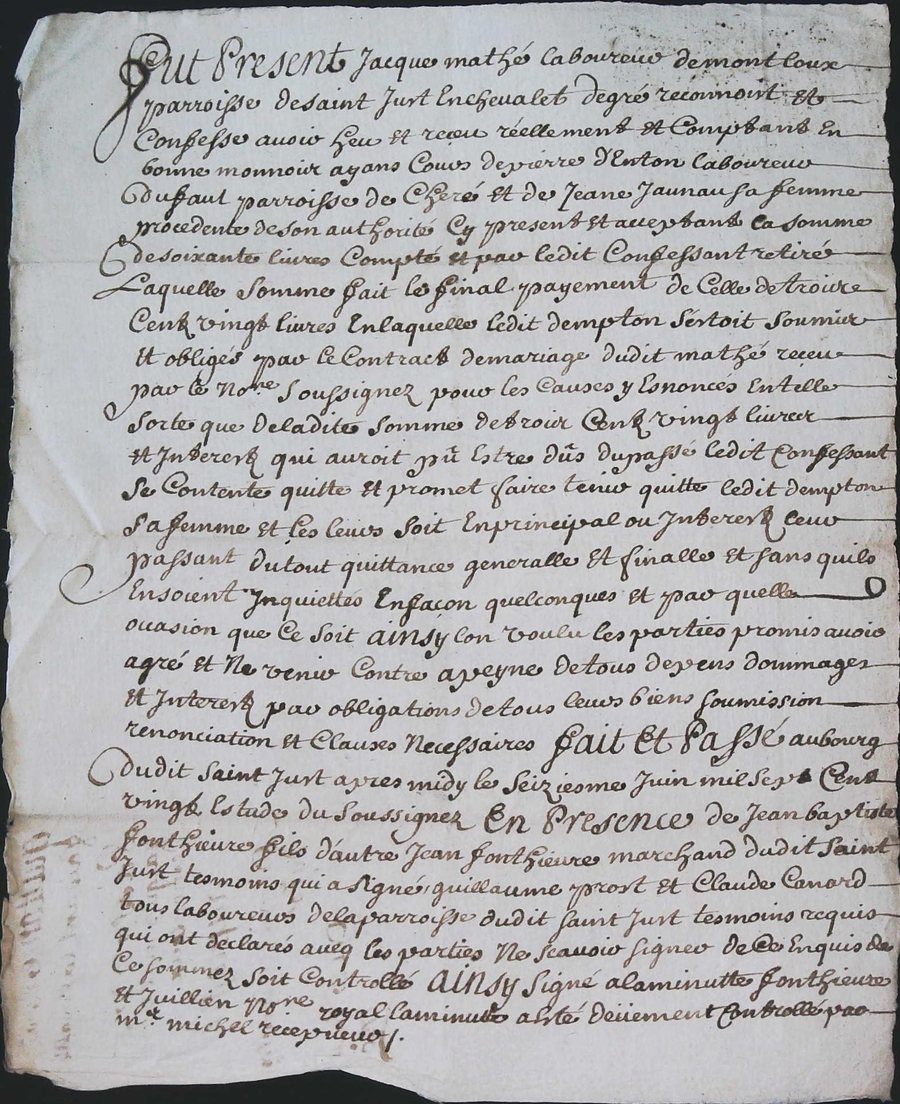 Fut Present Jacque mathé laboureur de montloux
parroisse desaint Just Enchevalet degré reconnoist et
Confesse avoir heu et receu réellement et Comptant En
bonne monnoie ayans Cours depierre d'Enton laboureur
Dufaut parroisse de Cheré et de Jeane Jaunau sa femme
procedente deson authorité Cy present et acceptant la somme
desoixante livres Compté et par ledit Confessant retiré
Laquelle somme fait le final payement de Celle detrois
Cent vingt livres Enlaquelle ledit dempton s'estoit soumis
et obligés par le Contract demariage dudit mathé receu
par le No.re soussignez pour les Causes y Esnoncés Entelle
sorte que deladite somme detrois Cent vingt livres
et Interest qui auroit pû Estre dûs dupassé ledit Confessant
se Contente quitte et promet faire tenir quitte ledit dempton
sa femme et les leurs soit Enprincipal ou Interest leur
passant dutout quittance generalle et finalle et sans quils
Ensoient Inquiettés Enfaçon quelconques et par quelle
ocasion que Ce soit ainsy lon voulu les parties promis avoir
agré et Ne venir Contre apeyne detous depens dommages
et Interest par obligations detous leurs biens soumission
renonciation et Clauses Necessaires fait Et Passé aubourg
dudit saint Just apres midy le seiziesme Juin mil sept Cent
vingt Estude du soussignez En Presence de Jean baptiste
fonthieure fils d'autre Jean fonthieure marchand dudit saint
Just tesmoins qui a signé, guillaume prost et Claude Canard
tous laboureurs delaparroisse dudit saint Just tesmoins requis
qui ont declarés avecq les parties Ne scavoir signer de Ce Enquis de
Ce sommez soit Controllé ainsy signé alaminutte fonthieure
et Juillien No.re royal laminutte a esté deüement Controllé par
m.e michel recepveur /.